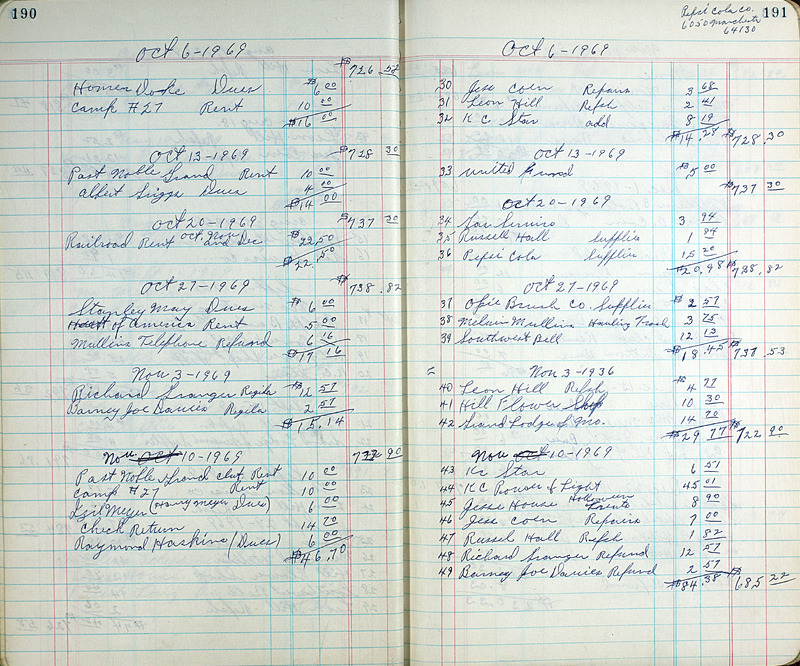 190
Oct 6-1969
$726.58
Homer Dooke Dues $6.00
Camp #27 Rent 10.00
$16.00
Oct 13-1969 $728.30
Past Noble Grand Rent 10.00
Albert Dues 4.00
$14.00
Oct 20-1969 $737.30
Railroad Rent Oct. Nov and Dec $22.50
$22.50
Oct 27-1969 $738.82
Stanley May Dues $6.00
of America Rent 5.00
Mullins Telephone Refund 6.16
$17.16
Nov 3-1969
Richard Granger Regila $12.57
Barney Joe Davies Regila 2.57
$15.14
Nov Oct 10-1969 722.90
Past Noble Grand club Rent 10.00
Camp #27 Rent 10.00
Meyer (Harry Meyer Dues) 6.00
Check Return 14.70
Raymond Haskins (Dues) 6.00
$46.70
Pepsi Cola Co.
6050 Manchester
64130
191
Oct 6-1969
30 Jess Coen Repairs 3.68
31 Leon Hill Refsh 2.41
32 K C Star add 8.19
$14.28 $728.30
Oct 13-1969
33 United Fund $5.00
$737.30
Oct 20-1969
34 3.94
35 Russell Hall Supplies 1.84
36 Pepsi Cola Supplies 15.20
$20.98 $738.82
Oct 27-1969
37 Brush Co. Supplies $2.57
38 Melvin Mullins Hauling Trash 3.75
39 Southwest Bell 12.13
$18.45 $737.53
Nov 3-1936
40 Leon Hill Refsh $4.77
41 Hill Flower Shop 10.30
42 Grand Lodge of Mo. 14.70
$29.77 $722.90
Nov Oct 10-1969
43 KC Star 6.51
44 KC Power & Light 45.01
45 Jesse House Halloween 8.90
46 Jess Coen Repairs 7.00
47 Russel Hall Refsh 1.82
48 Richard Granger Refund 12.57
49 Barney Joe Davies Refund 2.57
$84.38 $685.22